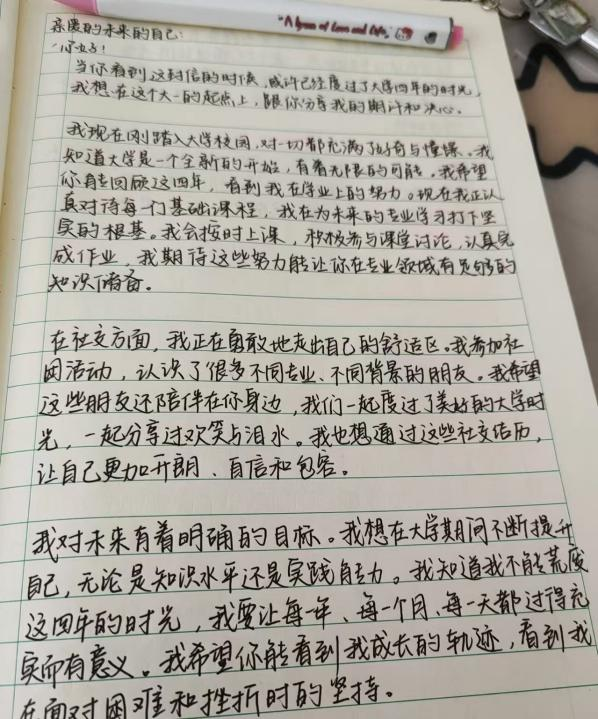 "A hymn of Love and Life"
亲爱的未来的自己：
你好！
当你看到这封信的时候，或许已经度过了大学四年的时光，
我想在这个大一的起点上，跟你分享我的期许和决心。
我现在刚踏入大学校园，对一切都充满了好奇与憧憬。我
知道大学是一个全新的开始，有着无限的可能。我希望
你能回顾这四年，看到我在学业上的努力。现在我正认
真对待每一门基础课程，我在为未来的专业学习打下坚
实的根基。我会按时上课，积极参与课堂讨论，认真完
成作业，我期待这些努力能让你在专业领域有足够的
知识储备。
在社交方面，我正在勇敢地走出自己的舒适区。我参加社
团活动，认识了很多不同专业、不同背景的朋友。我希望
这些朋友还陪伴在你身边，我们一起度过了美好的大学时
光，一起分享过欢笑与泪水。我也想通过这些社交经历，
让自己更加开朗、自信和包容。
我对未来有着明确的目标。我想在大学期间不断提升
自己，无论是知识水平还是实践能力。我知道我不能荒废
这四年的时光，我要让每一年、每一个月、每一天都过得充
实而有意义。我希望你能看到我成长的轨迹，看到我
在面对困难和挫折时的坚持。